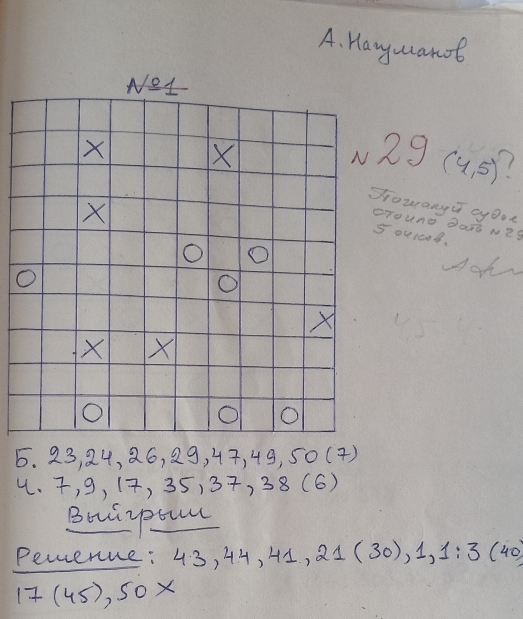 А. Нагуманов
№1
N 29 (4,5)?
Пожалуй судье
стоило дать N 29
5 очков.
Б. 23, 24, 26, 29, 47, 49, 50 (7)
Ч. 7, 9, 17, 35, 37, 38 (6)
Выйгрыш
Решение: 43, 44, 41, 21 (30), 1, 1:3 (40)
17 (45), 50 X